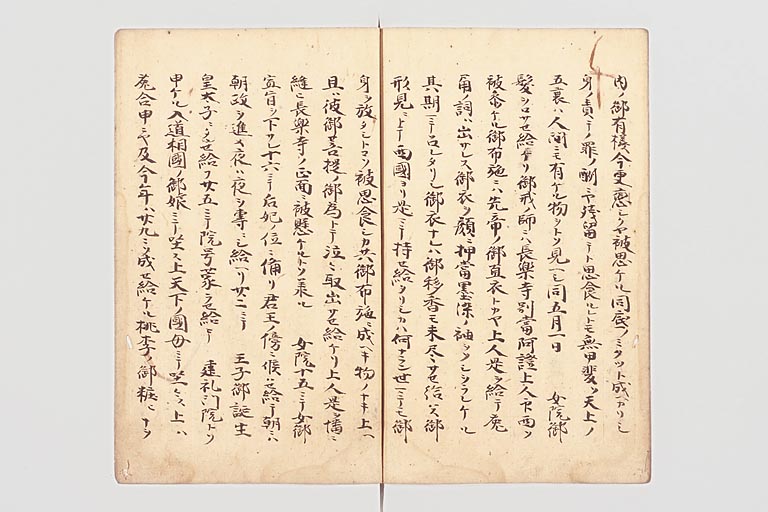 内ノ御有様今更悲シクヤ被思ケル同底ノミクツト成ベカリシ
身ノ責テノ罪ノ酬ニヤ残留テト思食ケレトモ無甲斐ソ天上ノ
五衰ハ人間ニモ有ケル物ヲトソ見ヘシ同五月一日 女院御
髪ヲロサセ給ケリ御戒ノ師ニハ長樂寺別當阿證上人印西ソ
被參ケル御布施ニハ先帝ノ御直衣トカヤ上人是ヲ給テ菟
角ノ詞ハ出サレス御衣ヲ顔ニ押當墨染ノ袖ヲソシラレケル
其期ニテ召レタリシ御衣ナレハ御移香モ未尽サセ給ハス御
形見ニトテ西國ヨリ是ニテ持セ給タリシカハ何ナラン世ニテモ御
身ヲ放タシトコソ被思食シカ共御布施ニ成ヘキ物ノナキ上ヘ
且ハ彼御菩提ノ御為トテ泣〻取出サセ給ケリ上人是ヲ幡ニ
縫ヒ長樂寺ノ正面ニ被懸ケルトソ承ル 女院十五ニテ女御
宣旨ヲ下サレ十六ニテ后妃ノ位ニ備リ君王ノ傍ニ候セ給テ朝ニハ
朝政ヲ進メ夜ハ夜ヲ専ニシ給ヘリ廿二ニテ 王子御誕生
皇太子ニ立セ給フ廿五ニテ院号蒙ラセ給テ 建礼門院トソ
申ケル入道相國ノ御娘ニテ坐ス上天下ノ國母ニテ坐ケル上ハ
菟角申ニヤ及今年ハ廿九ニソ成セ給ケル桃李ノ御粧ヒナヲ